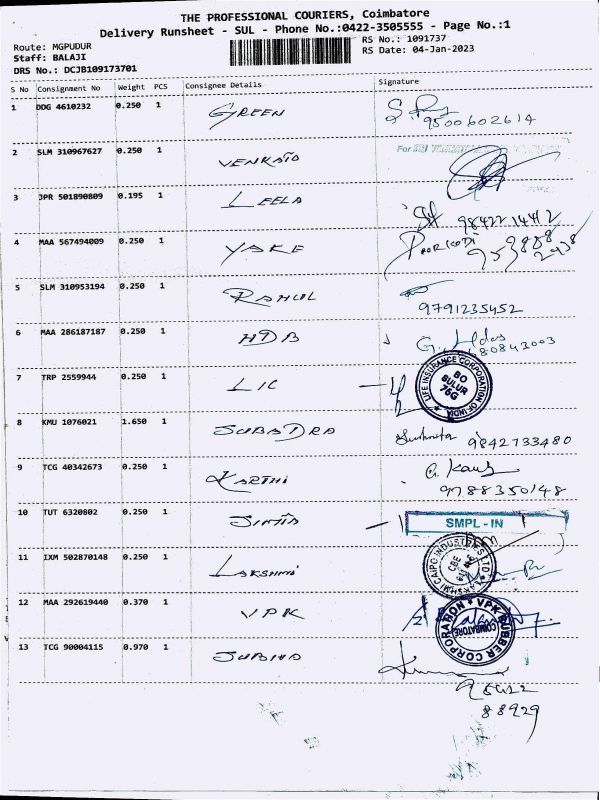 THE PROFESSIONAL COURIERS, Coimbatore
Delivery Runsheet - SUL - Phone No.:0422-3505555 - Page No.:1
Route: MGPUDUR
RS No.: 1091737
Staff: BALAJI
RS Date: 04-Jan-2023
DRS No.: DCJB109173701
S No Consignment No Weight PCS Consignee Details Signature
1 DDG 4610232 0.250 1 GREEN
9500602614
2 SLM 310967627 0.250 1 VENKATO
For SRI
3 JPR 501890809 0.195 1 LEELA
9842214412
4 MAA 567494009 0.250 1 YAKE
5 SLM 310953194 0.250 1 RAHUL
9791235452
6 MAA 286187187 0.250 1 HDB
80843003
7 TRP 2559944 0.250 1 LIC
LIFE INSURANCE CORPORATION OF INDIA
BO
SULUR
76G
8 KMU 1076021 1.650 1 SUBADRA
9842733480
9 TCG 40342673 0.250 1 KARTHI
9788350148
10 TUT 6320802 0.250 1
SMPL - IN
11 IXM 502870148 0.250 1 LAKSHMI
LAKSHMI CAIPO INDUSTRIES LTD
CBE
12 MAA 292619440 0.370 1 VPK
VPK RUBBER CORPORATION
COIMBATORE
13 TCG 90004115 0.970 1
88929